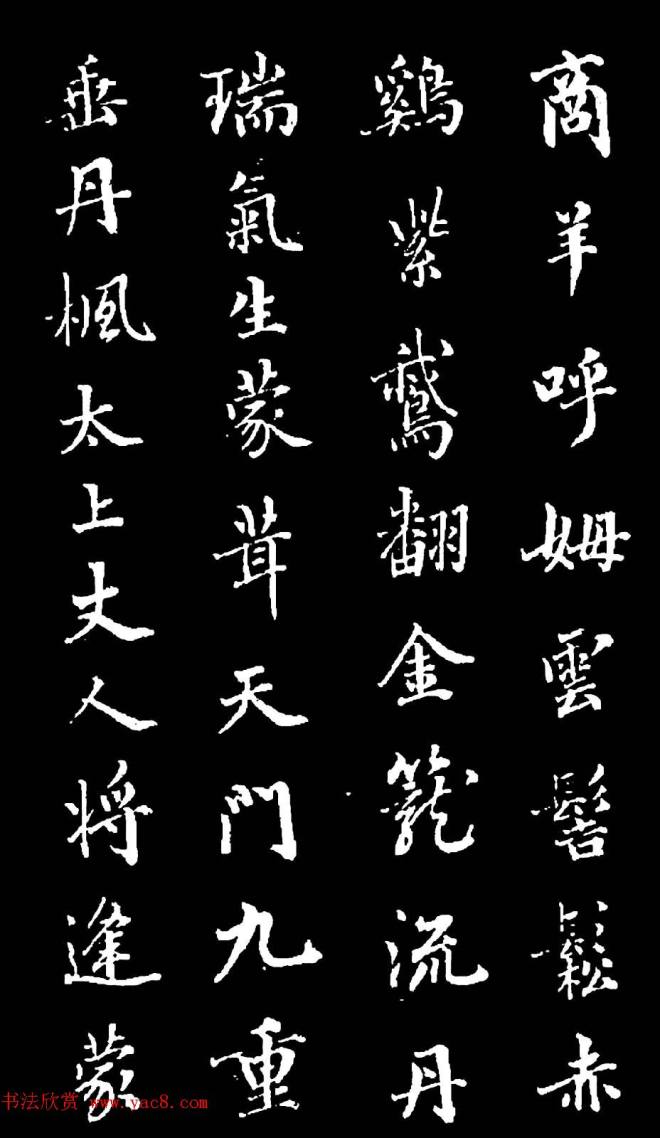 商羊呼姆雲髻鬆赤
鷄紫鵞翻金籠流丹
瑞氣生蒙茸天門九重
垂丹楓太上丈人將逢蒙
书法欣赏 www.yac8.com